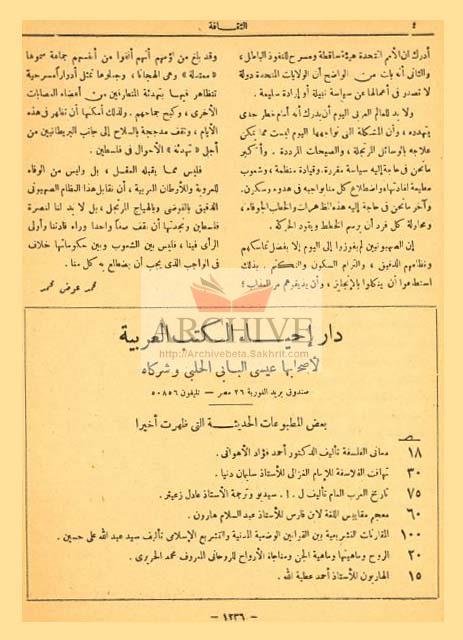 ٤
الثقافة
أدرك ان الأمم المتحدة هيئة ساقطة ومسرح للنفوذ الباطل ،
والثانى أنه بات من الواضح أن الولايات المتحدة دولة
لا تصدر فى أعمالها عن سياسة نبيلة أو إرادة سليمة .
ولا بد للعالم العربى اليوم أن يدرك أنه أمام خطر جدى
يتهدده ، وأن المشكلة التى نواجهها اليوم ليست مما يمكن
علاجه بالوسائل المرتجلة ، والصيحات المرددة . وأكبر
مانحن فى حاجة إليه سياسة مقررة، وقيادة منظمة ، وشعوب
مطيعة لقادتها واضطلاع كل منا بواجبه فى هدوء وسكون .
وآخر مانحن فى حاجة إليه هذه المظاهرات والخطب الجوفاء ،
ومحاولة كل فرد أن يرسم الخطط ويقود الحركة .
إن الصهيونيين لم يفوزوا إلى اليوم إلا بفضل تماسكهم
ونظامهم الدقيق ، والتزام السكون والتكتم . بذلك
استطاعوا أن ينكلوا بالإنجليز ، وأن يذيقوهم مر العذاب ؛
وقد بلغ من لؤمهم أنهم ألفوا من أنفسهم جماعة سموها
« معتدلة » وهى الهجانا ، وجعلوها تمثل أدواراً مسرحية
تتظاهر فيها بتهدئة المتطرفين من أعضاء العصابات
الأخرى ، وكبح جماحهم . ولذلك أمكنها أن تظهر فى هذه
الأيام ، وتقف مدججة بالسلاح إلى جانب البريطانيين من
أجل « تهدئة » الأحوال فى فلسطين .
فليس مما يقبله العقل ، بل وليس من الوفاء
للعروبة وللأوطان العربية ، أن نقابل هذا النظام الصهيونى
الدقيق بالفوضى وبالهياج المرتجل ، بل لا بد لنا لنصرة
فلسطين ونجدتها أن نقف صفاً واحدا وراء قادتنا وأولى
الرأى فينا ، فليس بين الشعوب وبين حكوماتها خلاف
فى الواجب الذى يجب أن يضطلع به كل منا .
محمد عوض محمد
ARCHIVE
http://Archivebeta.Sakhrit.com
دار إحياء الكتب العربية
لأصحابها عيسى البابى الحلبى وشركاه
صندوق بريد الغورية ٢٦ مصر — تليفون ٥٠٨٥٦
بعض المطبوعات الحديثة التى ظهرت أخيرا
١٨ معانى الفلسفة تأليف الدكتور أحمد فؤاد الأهوانى .
٣٠ تهافت الفلاسفة للإمام الغزالى للأستاذ سليمان دنيا .
٧٥ تاريخ العرب العام تأليف ل . ا . سيديو وترجمة الأستاذ عادل زعيتر .
٦٠ معجم مقاييس اللغة لابن فارس للأستاذ عبد السلام هارون .
١٠٠ المقارنات التشريعية بين القوانين الوضعية المدنية والتشريع الإسلامى تأليف سيد عبد الله على حسين .
٢٠ الروح وماهيتها وماهية الجن ومناجاة الأرواح للروحانى المعروف محمد الحريرى .
١٥ الهاربون للأستاذ أحمد عطية الله .
— ١٢٣٦ —